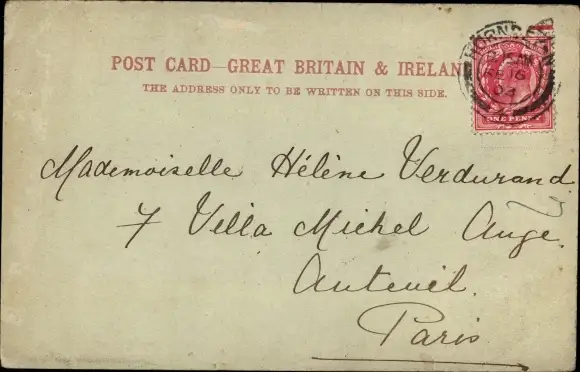 POST CARD—GREAT BRITAIN & IRELAN
THE ADDRESS ONLY TO BE WRITTEN ON THIS SIDE.
ONE PENNY
Mademoiselle Hélène Verdurand
7 Villa Michel Ange.
Auteuil.
Paris